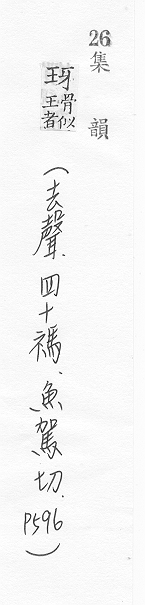 26
集韻
玡 骨似王者
(去聲.四十禡.魚駕切.P596)